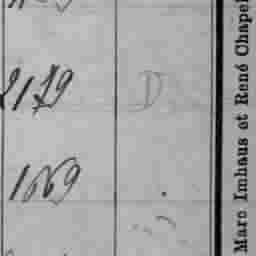 2179 D
1669
Marc Imhaus et René Chapel